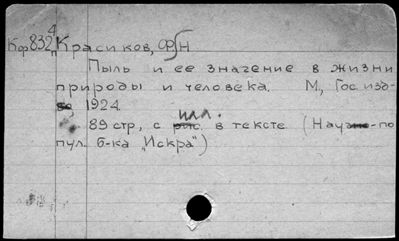 Кф832 4 Красиков, Ф Н
Пыль и ее значение в жизни
природы и человека. М, Гос изд-
во 1924
89 стр, с илл. в тексте (Науч-по
пул. б-ка „Искра")